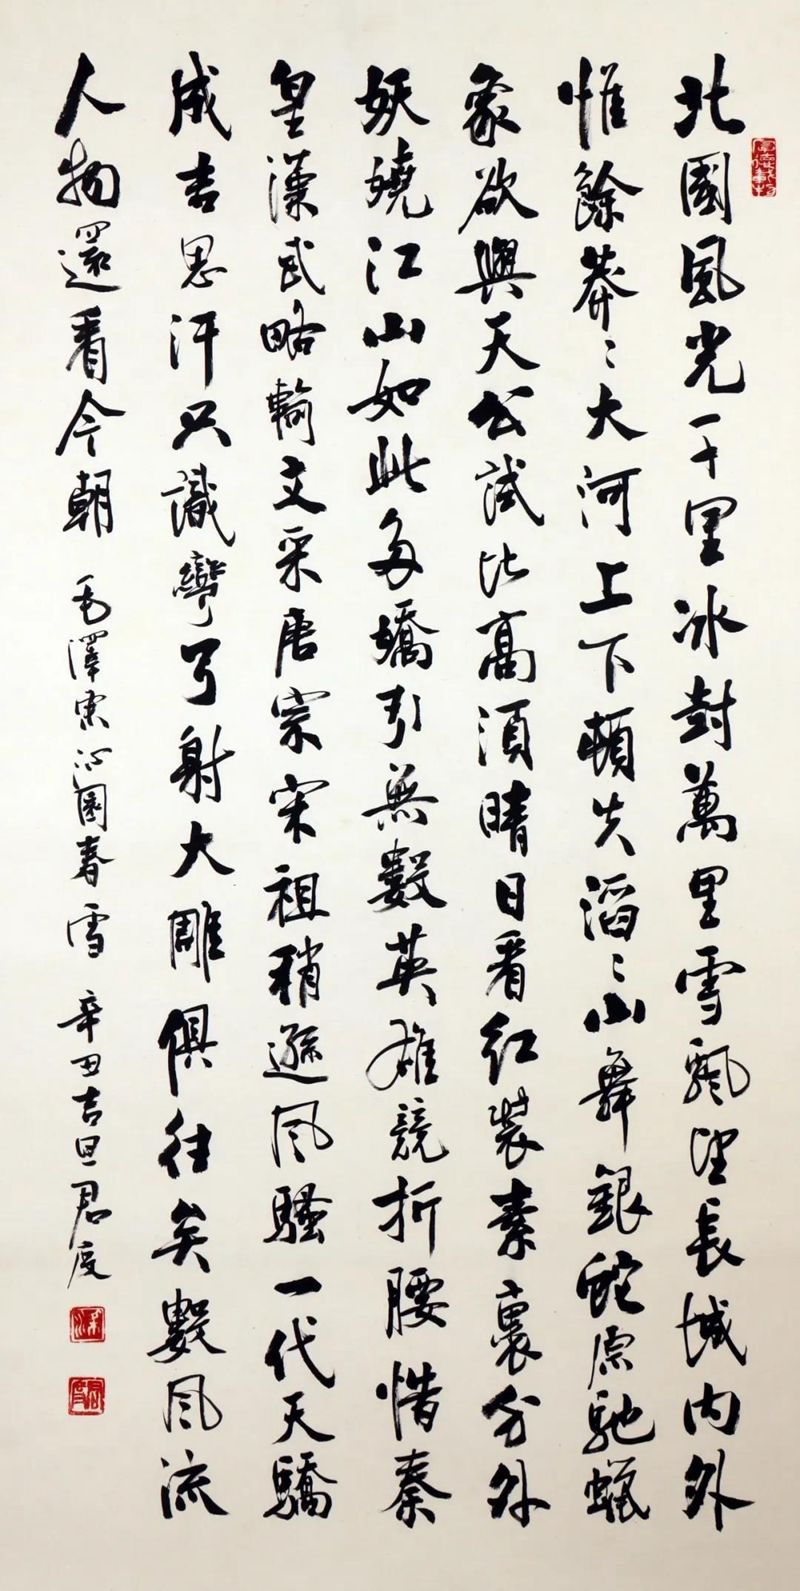 厚德載物
北國風光一千里冰封萬里雪飄望長城内外
惟餘莽〻大河上下頓失滔〻山舞銀蛇原馳蠟
象欲與天公試比高須晴日看紅裝素裹分外
妖嬈江山如此多嬌引無數英雄競折腰惜秦
皇漢武略輸文采唐宗宋祖稍遜風騷一代天驕
成吉思汗只識彎弓射大雕俱往矣數風流
人物還看今朝 毛澤東沁園春雪 辛丑吉旦君度
君度